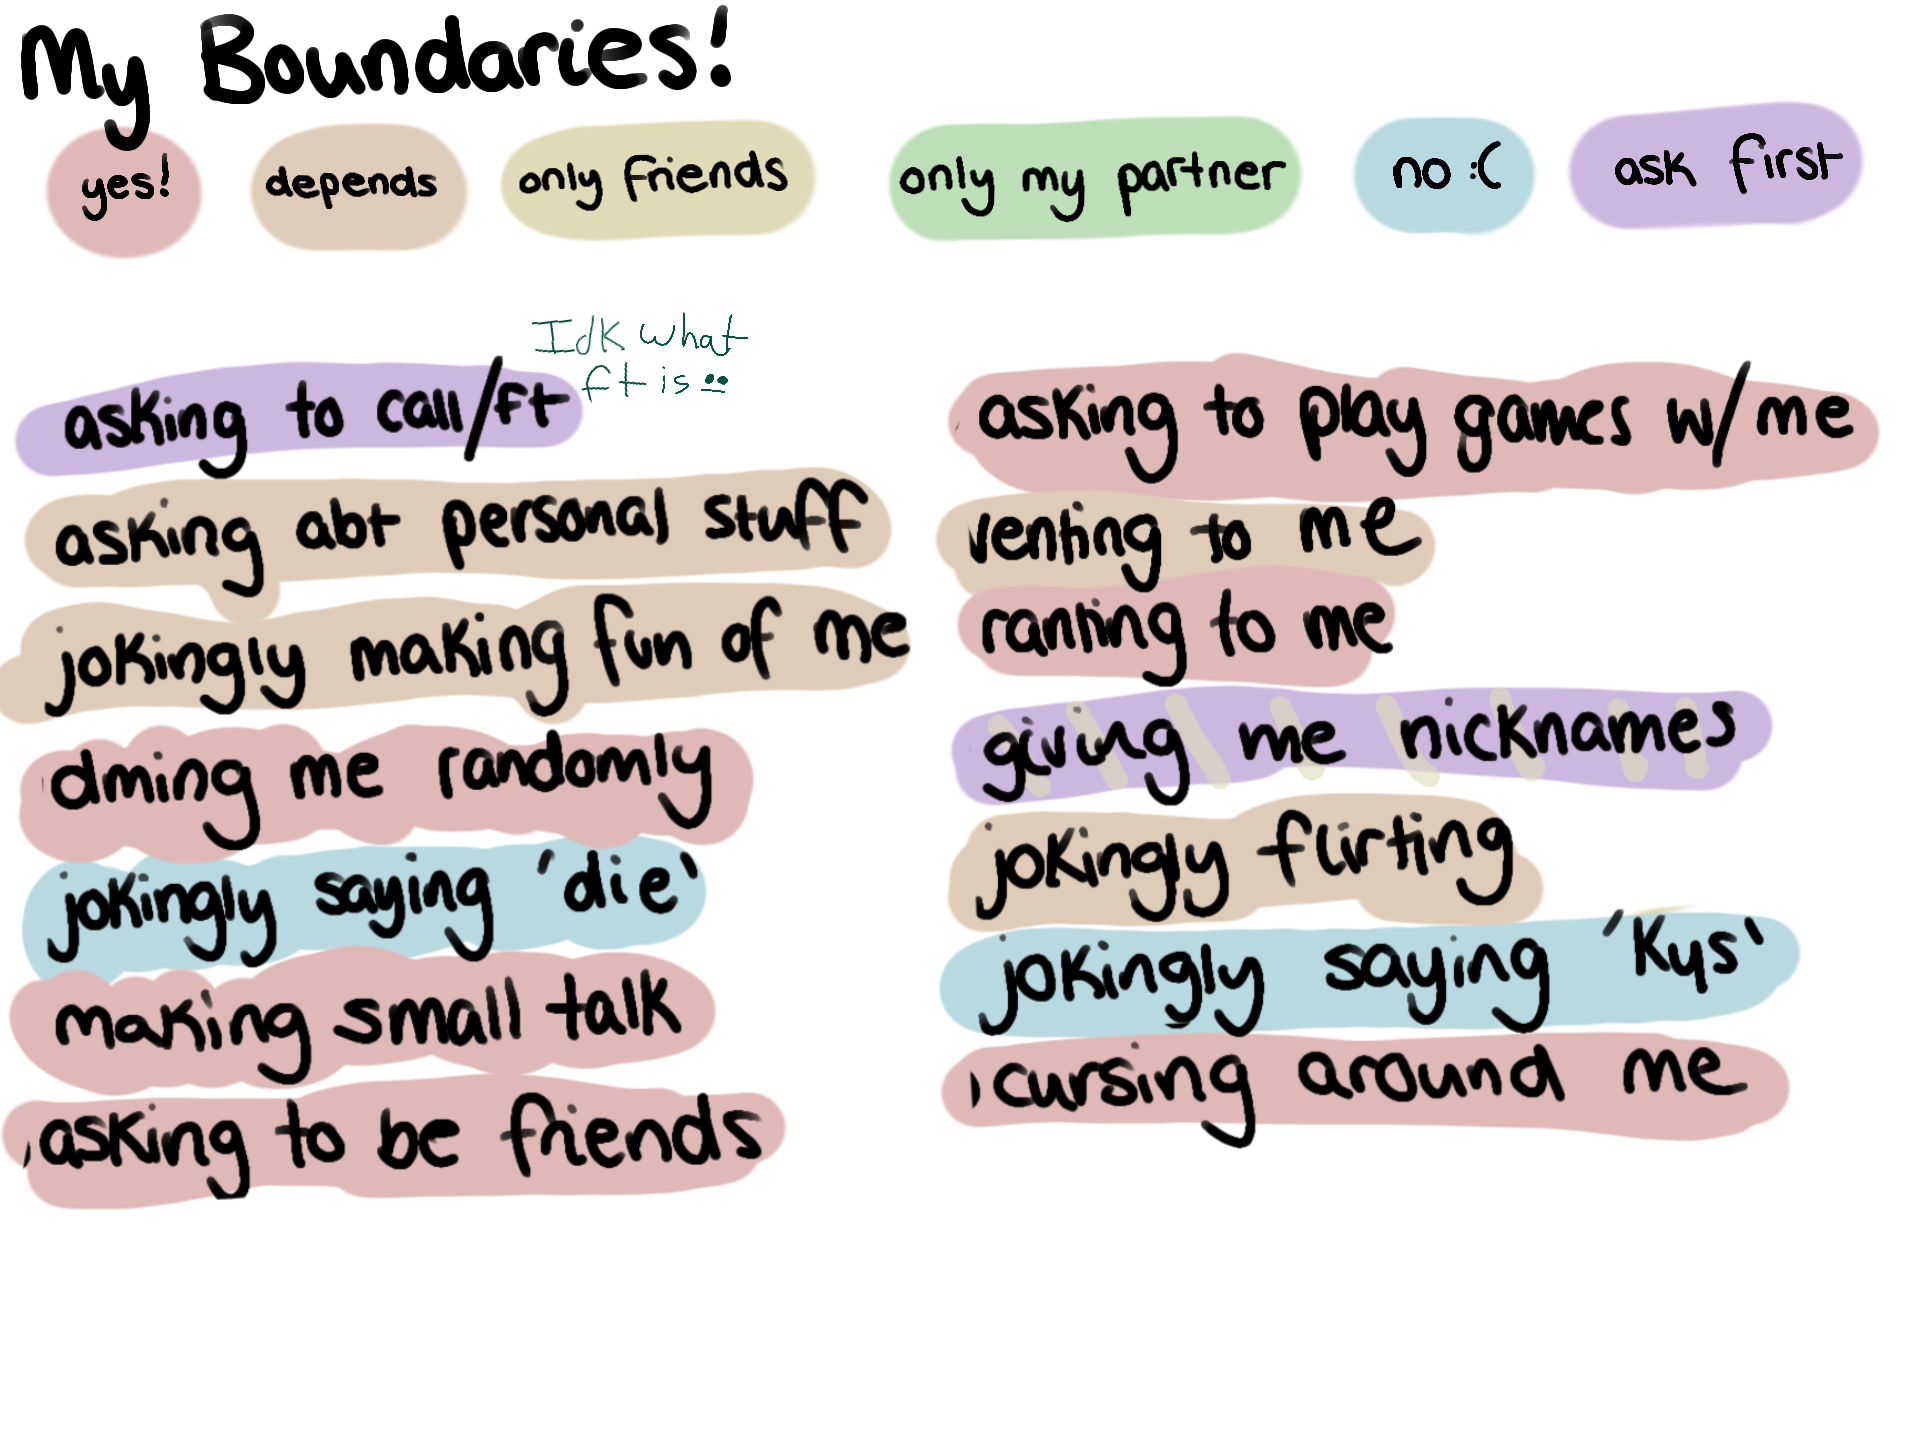 My Boundaries!
yes! depends only friends only my partner no :( ask first
Idk what
ft is
asking to call/ft
asking abt personal stuff
jokingly making fun of me
dming me randomly
jokingly saying 'die'
making small talk
asking to be friends
asking to play games w/me
venting to me
ranting to me
giving me nicknames
jokingly flirting
jokingly saying 'kys'
cursing around me